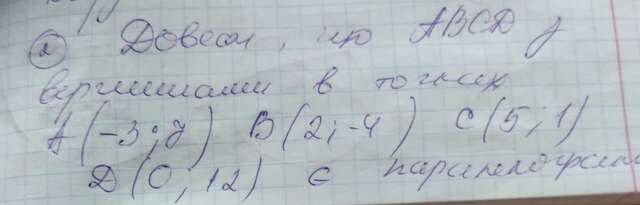 2 Довести, що ABCD з
вершинами в точках
A(-3; 7) B(2; -4) C(5; 1)
D(0, 12) є паралелограм